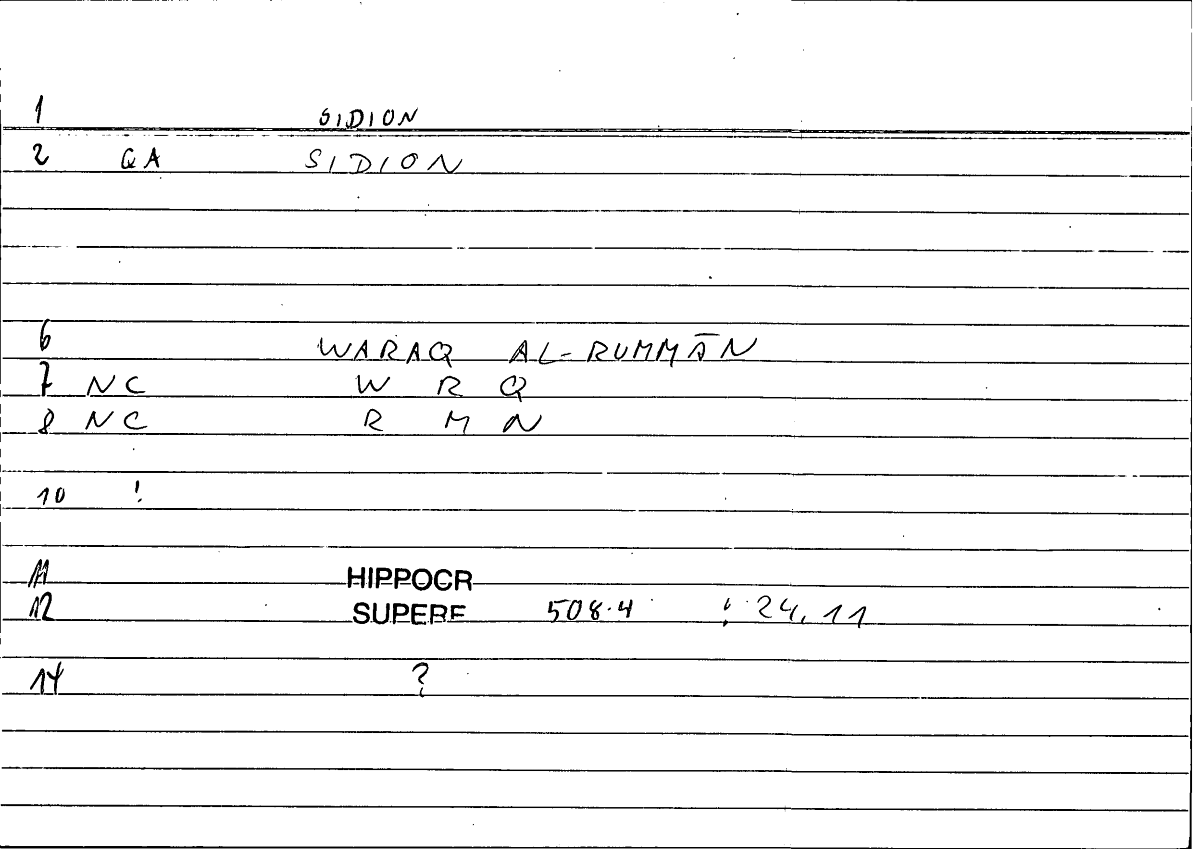 1 SIDION
2 QA SIDION
6 WARAQ AL-RUMMĀN
7 NC W R Q
8 NC R M N
10 !
11 HIPPOCR
12 SUPERF 508.4 ; 24, 11
14 ?